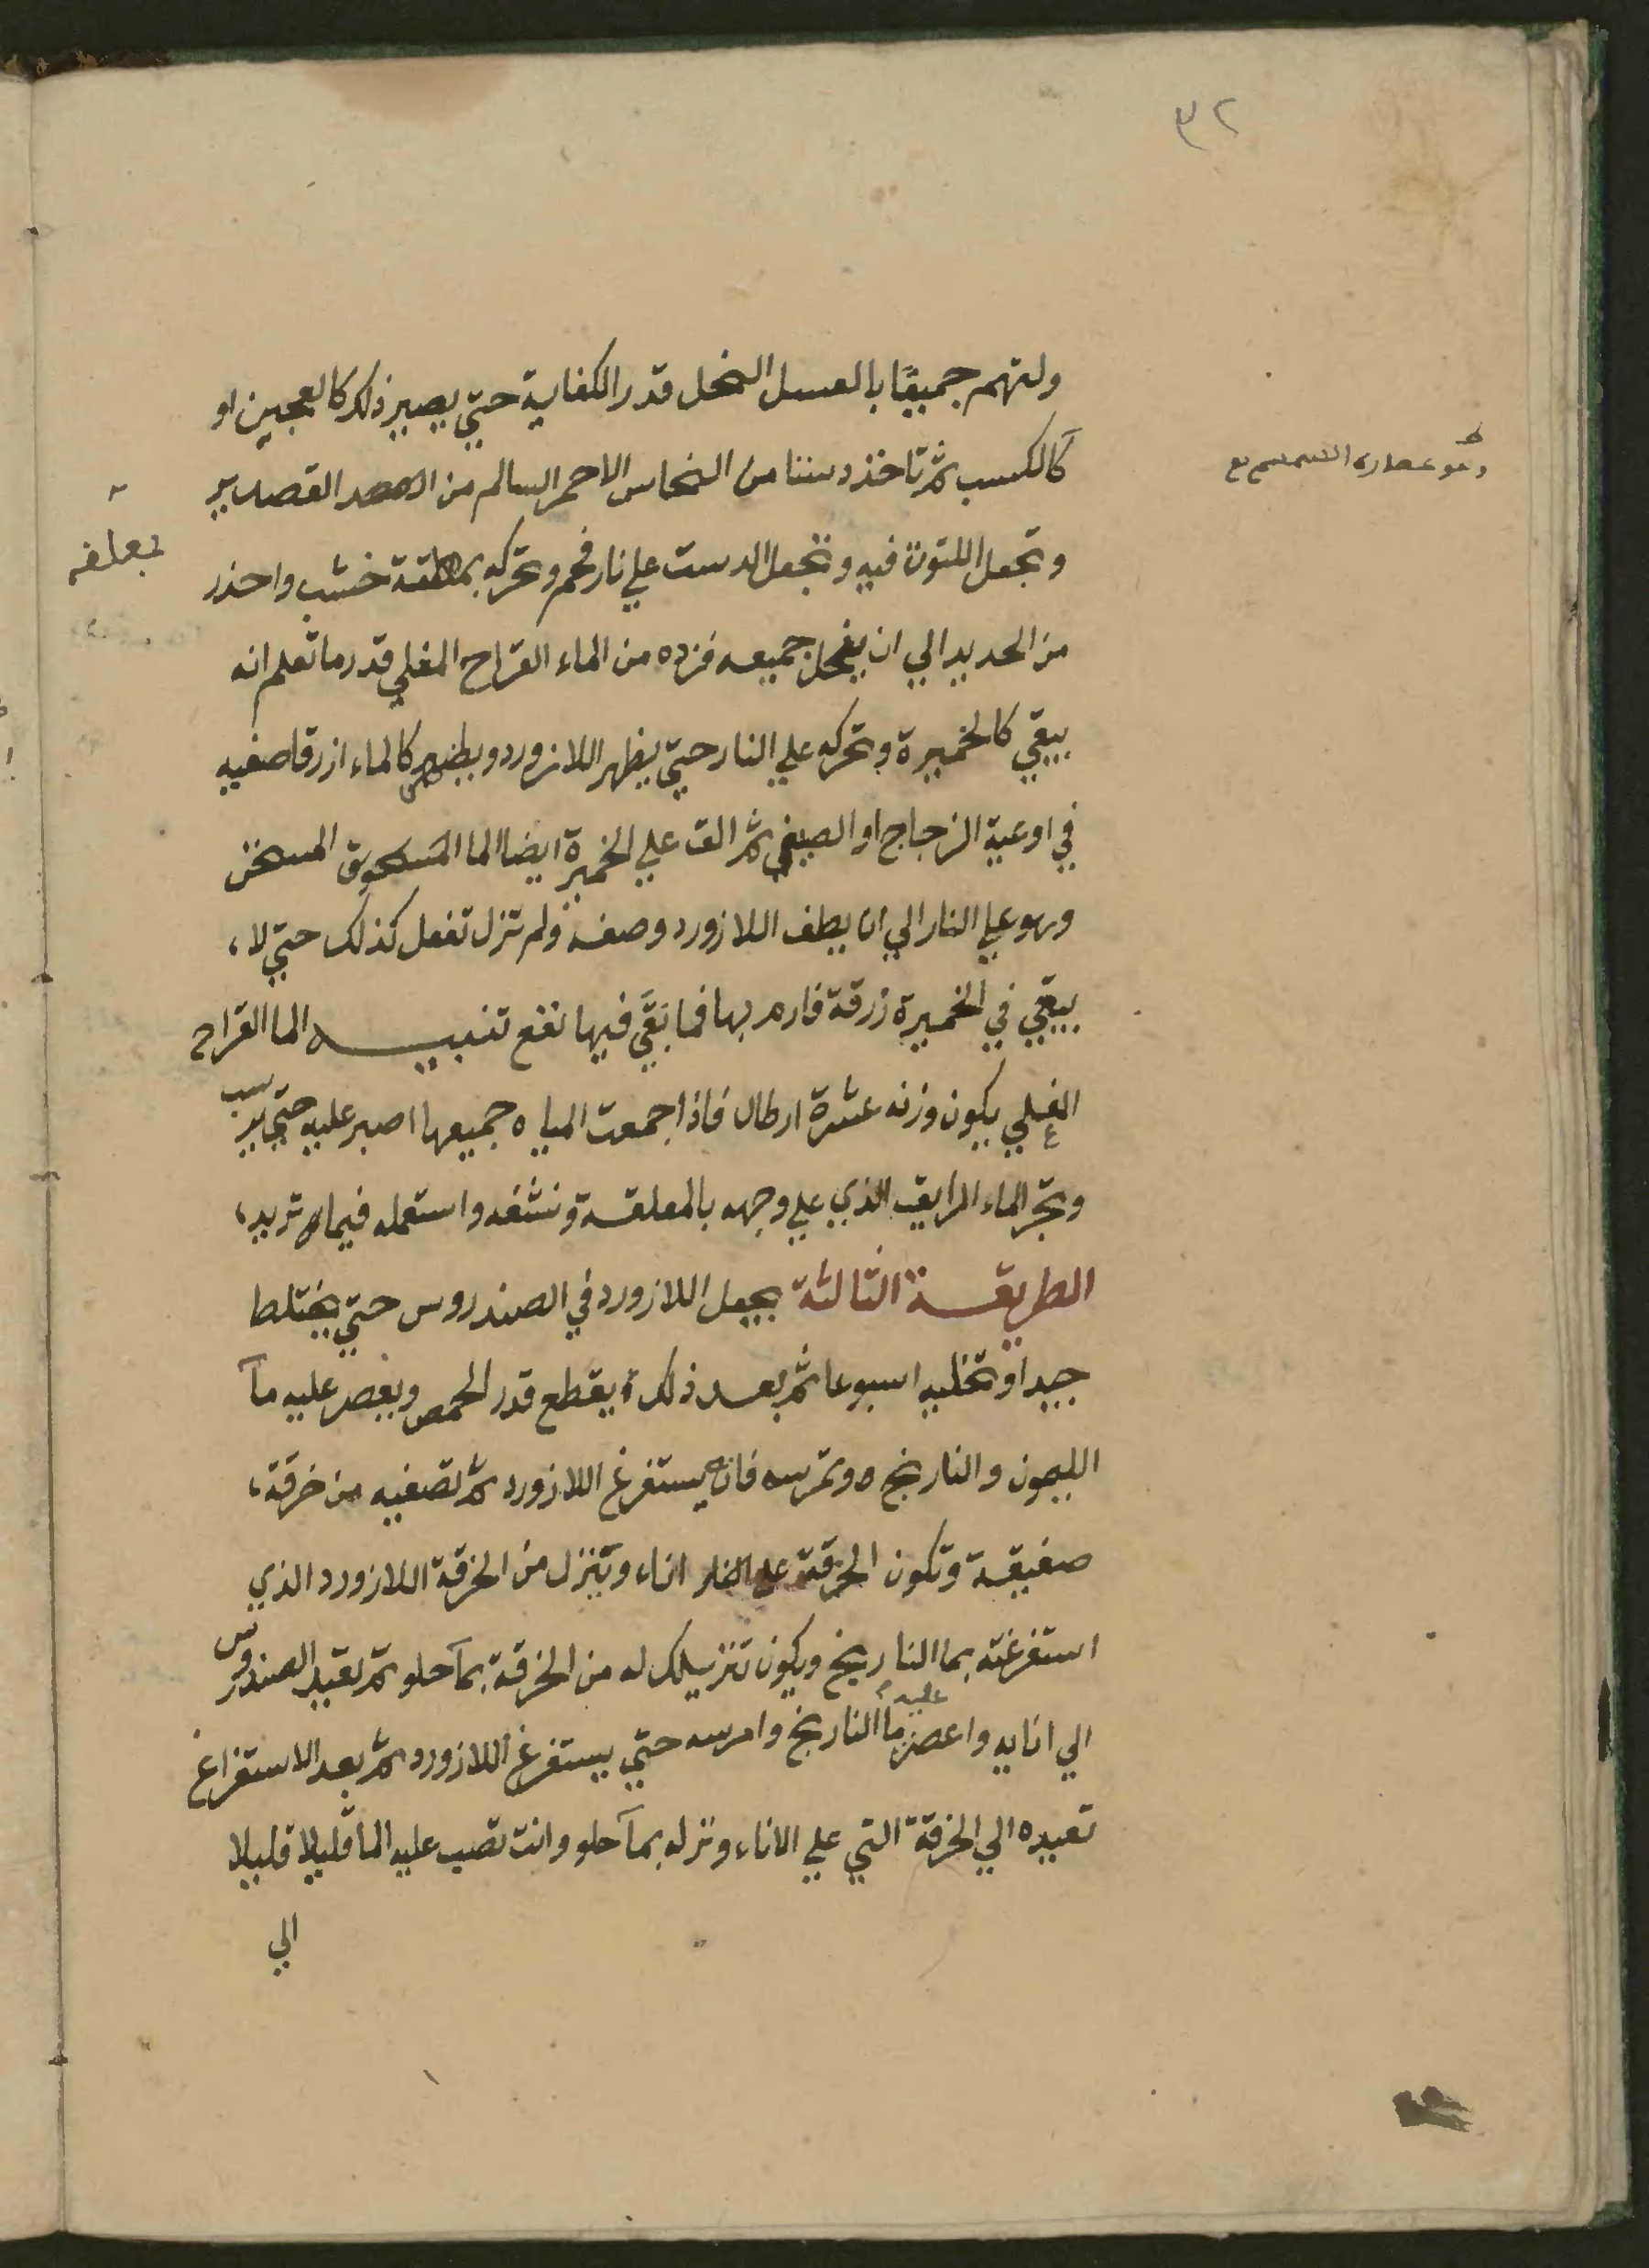 ٣٢
ولتهم جميعًا بالعسل النحل قدر الكفاية حتي يصير ذلك كالعجين او
كالكسب ثم تاخذ دستا من النحاس الاحمر السالم من القصدير
وهو عصارة السمسم
وتجعل اللتوت فيه وتجعل الدست علي نار فحم وتحركه خشب واحذر
بمعلقة
من الحديد الي ان ينحل جميعه فزده من الماء القراح المغلي قدر ما تعلم انه
يبقي كالخميرة وتحركه علي النار حتي يظهر اللازورد ويطير كالماء ازرقا صفيه
في اوعية الزجاج او الصيني ثم الق علي الخميرة ايضا الما المسحوق المسخن
وهو علي النار الي ان يطف اللازورد وصفه ولم تزل تفعل كذلك حتي لا،
يبقي في الخميرة زرقة فارم بها فما بقَّي فيها نفع تنبيـــه الما القراح
المغلي يكون وزنه عشرة ارطال فاذا جمعت المياه جميعها اصبر عليه حتي يرسب
وتجر الماء الرايق الذي علي وجهه بالمعلقة ونشفه واستعمله فيما تريد،
الطريقــة الثالثة يجعل اللازورد في الصندروس حتي يختلط
جيدا وتخليه اسبوعا ثم بعد ذلك يقطع قدر الحمص ويعصر عليه مآ
الليمون والنارنج وتمرسه فانه يستفرغ اللازورد ثم تصفيه من خرقة،
صفيقة وتكون الخرقة علي اناء وتنزل من الخرقة اللازورد الذي
استفرغته بما النارنج ويكون تنزيلك له من الخرقة بمآ حلو ثم تعيد الصندروس
الي انايه واعصر عليه ما النارنج وامرسه حتي يستفرغ اللازورد ثم بعد الاستفراغ
تعيده الي الخرقة التي علي الاناء ونزله بمآ حلو وانت تصب عليه الما قليلا قليلا
الي